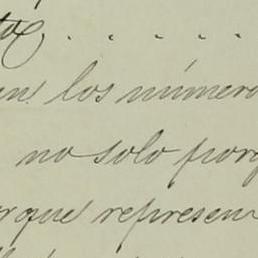 en los número
no solo porq
rque represen